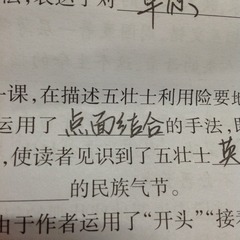 法,表达了对
一课,在描述五壮士利用险要地
运用了 点面结合 的手法,
,使读者见识到了五壮士 英
的民族气节。
由于作者运用了“开头”“接